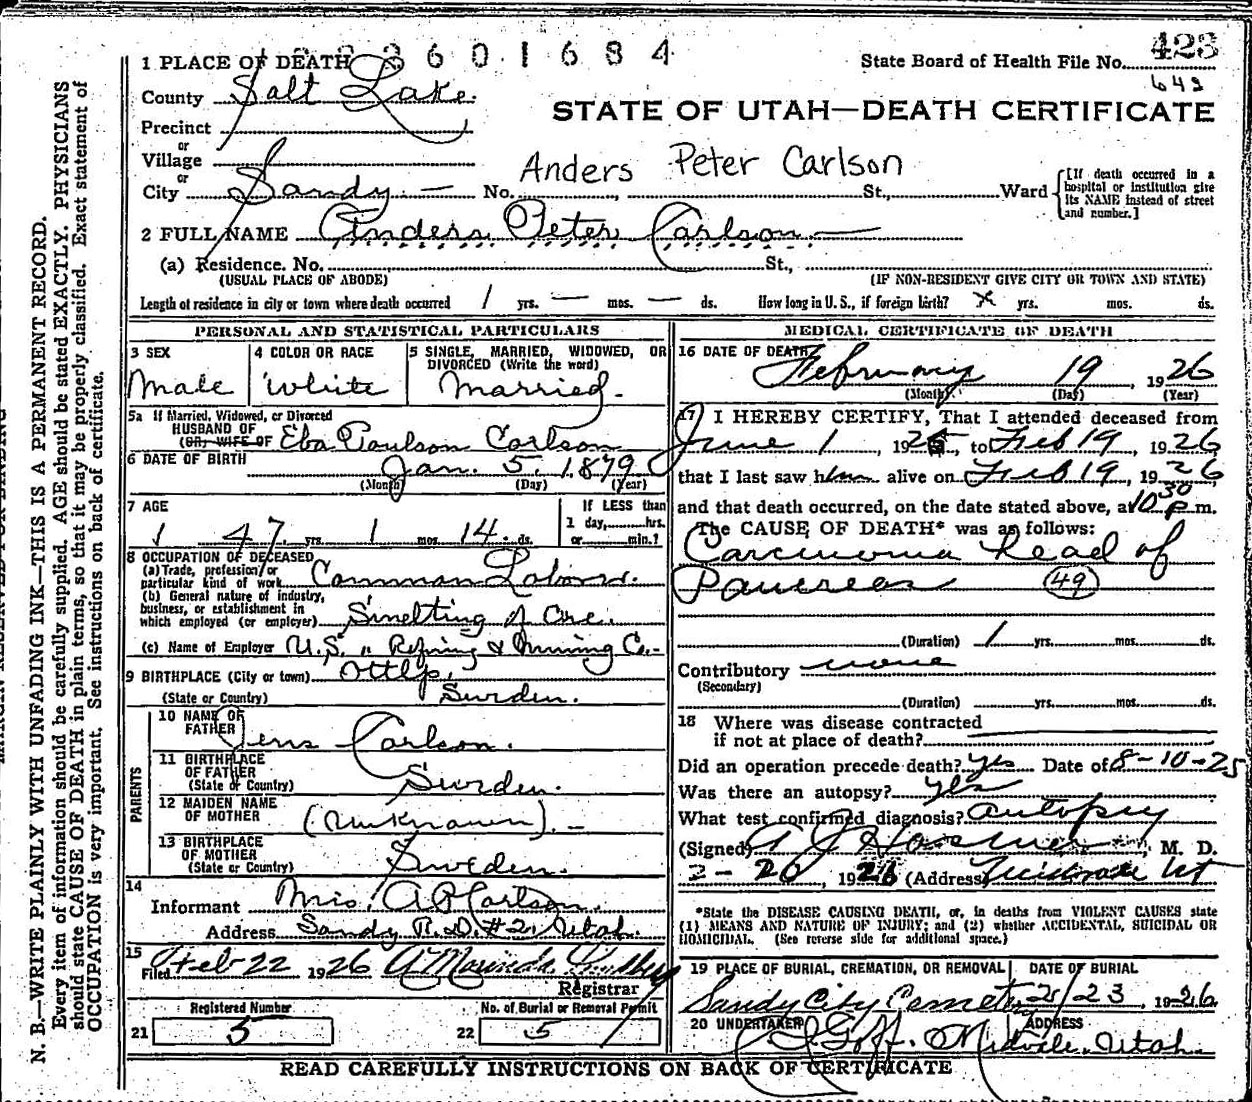 3 6 0 1 6 8 4
State Board of Health File No. 423
643
1 PLACE OF DEATH
County Salt Lake.
STATE OF UTAH—DEATH CERTIFICATE
Precinct
or
Village
Anders Peter Carlson
or
City Sandy. — No. St., Ward [If death occurred in a hospital or institution give its NAME instead of street and number.]
2 FULL NAME Anders Peter Carlson —
(a) Residence. No. St.,
(USUAL PLACE OF ABODE) (IF NON-RESIDENT GIVE CITY OR TOWN AND STATE)
Length of residence in city or town where death occurred 1 yrs. — mos. — ds. How long in U. S., if foreign birth? x yrs. mos. ds.
PERSONAL AND STATISTICAL PARTICULARS
3 SEX 4 COLOR OR RACE 5 SINGLE, MARRIED, WIDOWED, OR DIVORCED (Write the word)
Male White Married.
5a If Married, Widowed, or Divorced
HUSBAND OF
(OR) WIFE OF Eba Poulson Carlson
6 DATE OF BIRTH Jan. 5, 1879
(Month) (Day) (Year)
7 AGE If LESS than
1 day, hrs.
47 yrs. 1 mos. 14. ds. or min.?
8 OCCUPATION OF DECEASED
(a) Trade, profession or
particular kind of work Common Labor.
(b) General nature of industry,
business, or establishment in
which employed (or employer) Smelting of Ore.
(c) Name of Employer U.S. " Refining & Mining Co.-
9 BIRTHPLACE (City or town)
(State or Country) Sweden.
PARENTS
10 NAME OF
FATHER Jens Carlson.
11 BIRTHPLACE
OF FATHER
(State or Country) Sweden.
12 MAIDEN NAME
OF MOTHER (Unknown). -
13 BIRTHPLACE
OF MOTHER
(State or Country) Sweden.
14
Informant Mrs. A P Carlson.
Address Sandy R.D. #2, Utah.
15
Filed Feb 22 1926
Registrar
Registered Number No. of Burial or Removal Permit
21 5 22 5
MEDICAL CERTIFICATE OF DEATH
16 DATE OF DEATH
February 19, 1926
(Month) (Day) (Year)
17 I HEREBY CERTIFY, That I attended deceased from
June 1, 1925, to Feb 19, 1926
that I last saw him alive on Feb 19, 1926
and that death occurred, on the date stated above, at 10 30 p.m.
The CAUSE OF DEATH* was as follows:
Carcinoma head of
Pancreas (49)
(Duration) 1 yrs. mos. ds.
Contributory none
(Secondary)
(Duration) yrs. mos. ds.
18 Where was disease contracted
if not at place of death?
Did an operation precede death? yes Date of 8-10-25
Was there an autopsy? yes
What test confirmed diagnosis? autopsy
(Signed) M. D.
2-20, 1926 (Address) Ut
*State the DISEASE CAUSING DEATH, or, in deaths from VIOLENT CAUSES state
(1) MEANS AND NATURE OF INJURY; and (2) whether ACCIDENTAL, SUICIDAL OR
HOMICIDAL. (See reverse side for additional space.)
19 PLACE OF BURIAL, CREMATION, OR REMOVAL DATE OF BURIAL
Sandy City Cemetery 2/23, 1926
20 UNDERTAKER ADDRESS
Goff. Midvale. Utah.
READ CAREFULLY INSTRUCTIONS ON BACK OF CERTIFICATE
N. B.—WRITE PLAINLY WITH UNFADING INK—THIS IS A PERMANENT RECORD.
Every item of information should be carefully supplied. AGE should be stated EXACTLY. PHYSICIANS
should state CAUSE OF DEATH in plain terms, so that it may be properly classified. Exact statement of
OCCUPATION is very important. See instructions on back of certificate.